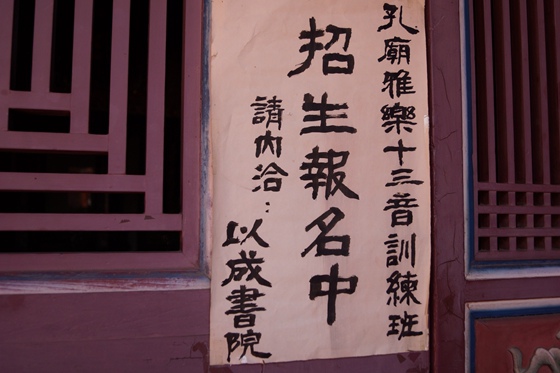 孔廟雅樂十三音訓練班
招生報名中
請內洽：以成書院